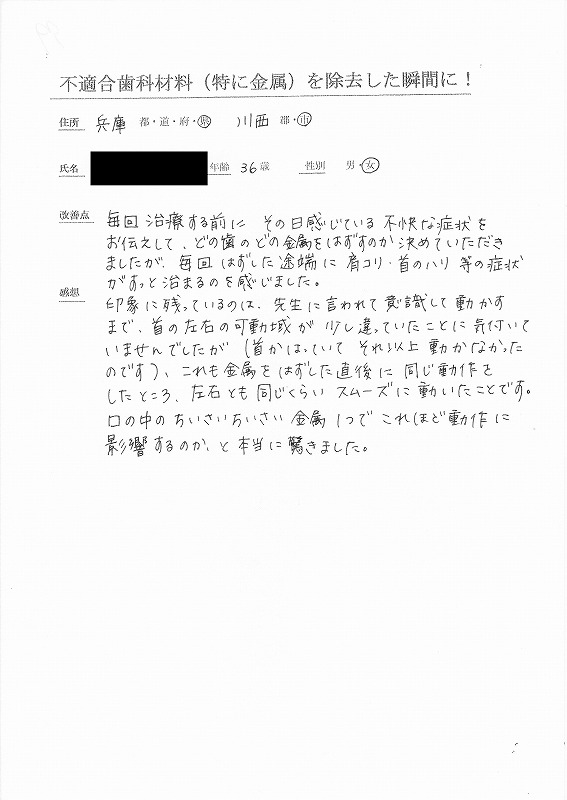 不適合歯科材料（特に金属）を除去した瞬間に！
住所 兵庫 都・道・府・県 川西 郡・市
氏名 年齢 36歳 性別 男・女
改善点 毎回 治療する前に その日感じている 不快な症状を
お伝えして、どの歯のどの金属をはずすのか決めていただき
ましたが、毎回はずした途端に肩コリ・首のハリ等の症状
がすっと治まるのを感じました。
感想 印象に残っているのは、先生に言われて意識して動かす
まで、首の左右の可動域が少し違っていたことに気付いて
いませんでしたが（首がはっていて それ以上動かなかった
のです）、これも金属をはずした直後に同じ動作を
したところ、左右とも同じくらいスムーズに動いたことです。
口の中のちいさいちいさい金属1つでこれほど動作に
影響するのか、と本当に驚きました。